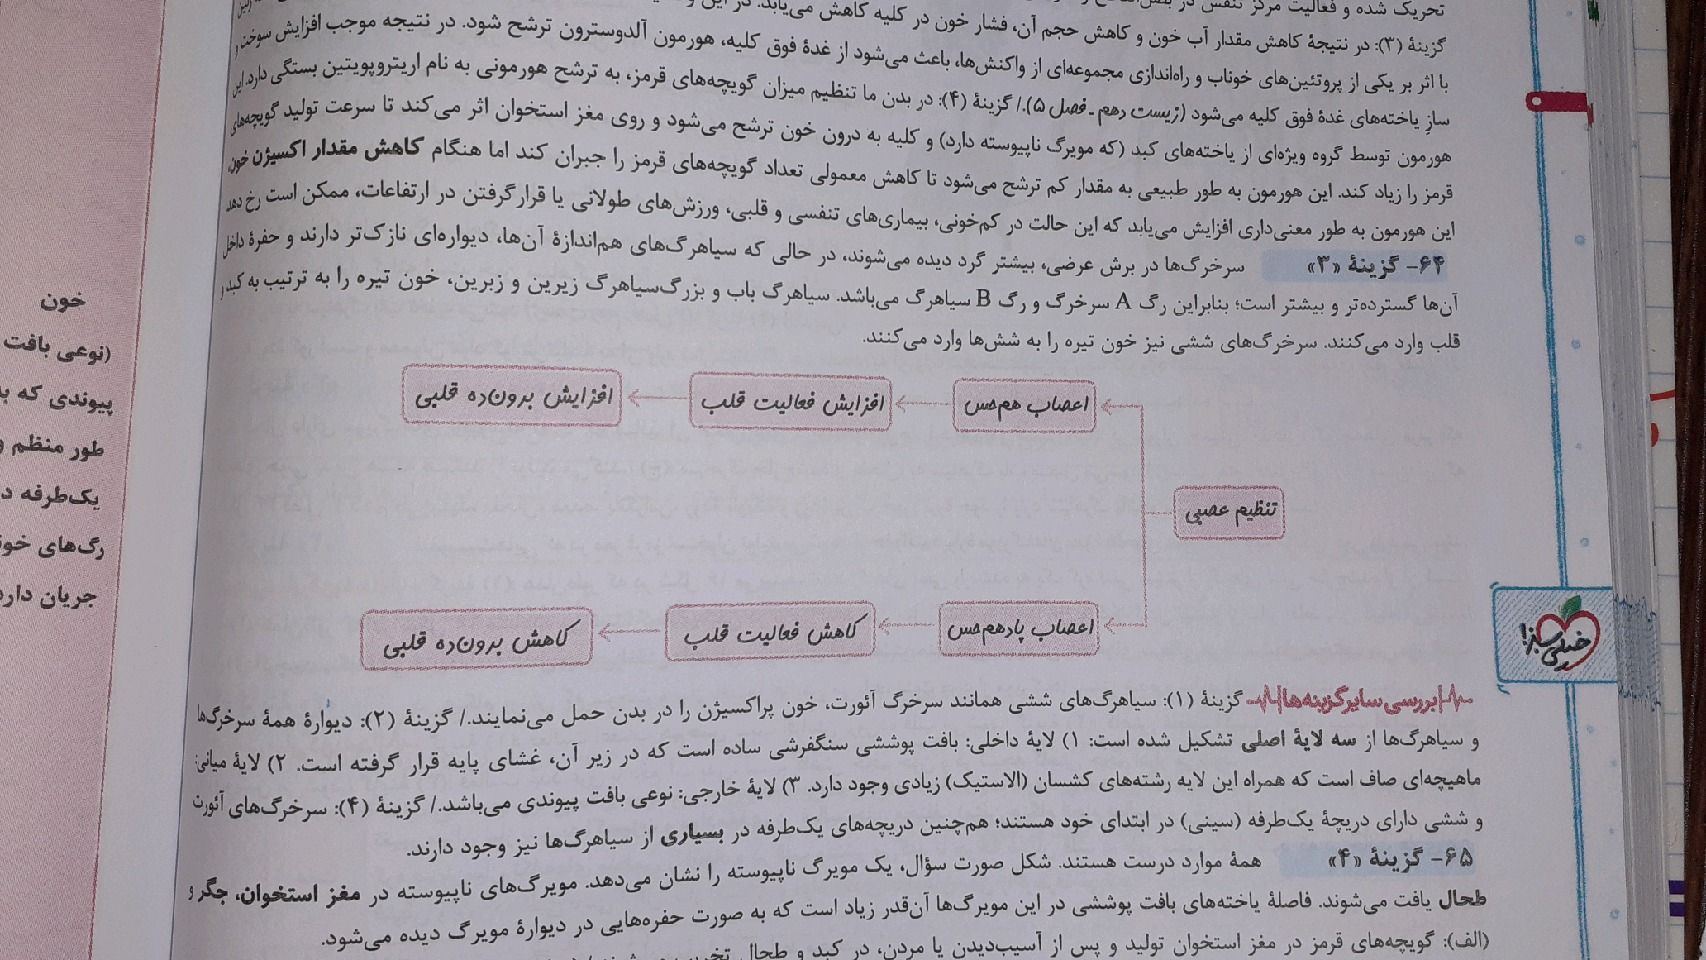 تحریک شده و فعالیت مرکز تنفس در
گزینهٔ (۳): در نتیجهٔ کاهش مقدار آب خون و کاهش حجم آن، فشار خون در کلیه کاهش می‌یابد. در این
با اثر بر یکی از پروتئین‌های خوناب و راه‌اندازی مجموعه‌ای از واکنش‌ها، باعث می‌شود از غدهٔ فوق کلیه، هورمون آلدوسترون ترشح شود. در نتیجه موجب افزایش سوخت و
سازِ یاخته‌های غدهٔ فوق کلیه می‌شود (زیست دهم - فصل ۵)./ گزینهٔ (۴): در بدن ما تنظیم میزان گویچه‌های قرمز، به ترشح هورمونی به نام اریتروپویتین بستگی دارد. این
هورمون توسط گروه ویژه‌ای از یاخته‌های کبد (که مویرگ ناپیوسته دارد) و کلیه به درون خون ترشح می‌شود و روی مغز استخوان اثر می‌کند تا سرعت تولید گویچه‌های
قرمز را زیاد کند. این هورمون به طور طبیعی به مقدار کم ترشح می‌شود تا کاهش معمولی تعداد گویچه‌های قرمز را جبران کند اما هنگام کاهش مقدار اکسیژن خون،
این هورمون به طور معنی‌داری افزایش می‌یابد که این حالت در کم‌خونی، بیماری‌های تنفسی و قلبی، ورزش‌های طولانی یا قرارگرفتن در ارتفاعات، ممکن است رخ دهد
۶۴- گزینهٔ «۳» سرخرگ‌ها در برش عرضی، بیشتر گرد دیده می‌شوند، در حالی که سیاهرگ‌های هم‌اندازهٔ آن‌ها، دیواره‌ای نازک‌تر دارند و حفرهٔ داخل
آن‌ها گسترده‌تر و بیشتر است؛ بنابراین رگ A سرخرگ و رگ B سیاهرگ می‌باشد. سیاهرگ باب و بزرگ‌سیاهرگ زیرین و زبرین، خون تیره را به ترتیب به کبد و
قلب وارد می‌کنند. سرخرگ‌های ششی نیز خون تیره را به شش‌ها وارد می‌کنند.
اعصاب هم‌حس
افزایش فعالیت قلب
افزایش برون‌ده قلبی
تنظیم عصبی
اعصاب پادهم‌حس
کاهش فعالیت قلب
کاهش برون‌ده قلبی
بررسی سایر گزینه‌ها گزینهٔ (۱): سیاهرگ‌های ششی همانند سرخرگ آئورت، خون پراکسیژن را در بدن حمل می‌نمایند./ گزینهٔ (۲): دیوارهٔ همهٔ سرخرگ‌ها
و سیاهرگ‌ها از سه لایهٔ اصلی تشکیل شده است: ۱) لایهٔ داخلی: بافت پوششی سنگفرشی ساده است که در زیر آن، غشای پایه قرار گرفته است. ۲) لایهٔ میانی:
ماهیچه‌ای صاف است که همراه این لایه رشته‌های کشسان (الاستیک) زیادی وجود دارد. ۳) لایهٔ خارجی: نوعی بافت پیوندی می‌باشد./ گزینهٔ (۴): سرخرگ‌های آئورت
و ششی دارای دریچهٔ یک‌طرفه (سینی) در ابتدای خود هستند؛ هم‌چنین دریچه‌های یک‌طرفه در بسیاری از سیاهرگ‌ها نیز وجود دارند.
۶۵- گزینهٔ «۴» همهٔ موارد درست هستند. شکل صورت سؤال، یک مویرگ ناپیوسته را نشان می‌دهد. مویرگ‌های ناپیوسته در مغز استخوان، جگر و
طحال یافت می‌شوند. فاصلهٔ یاخته‌های بافت پوششی در این مویرگ‌ها آن‌قدر زیاد است که به صورت حفره‌هایی در دیوارهٔ مویرگ دیده می‌شود.
(الف): گویچه‌های قرمز در مغز استخوان تولید و پس از آسیب‌دیدن یا مردن، در کبد و طحال
خیلی سبز!
خون
(نوعی بافت
پیوندی که
طور منظم و
یک‌طرفه
رگ‌های
جریان دارد